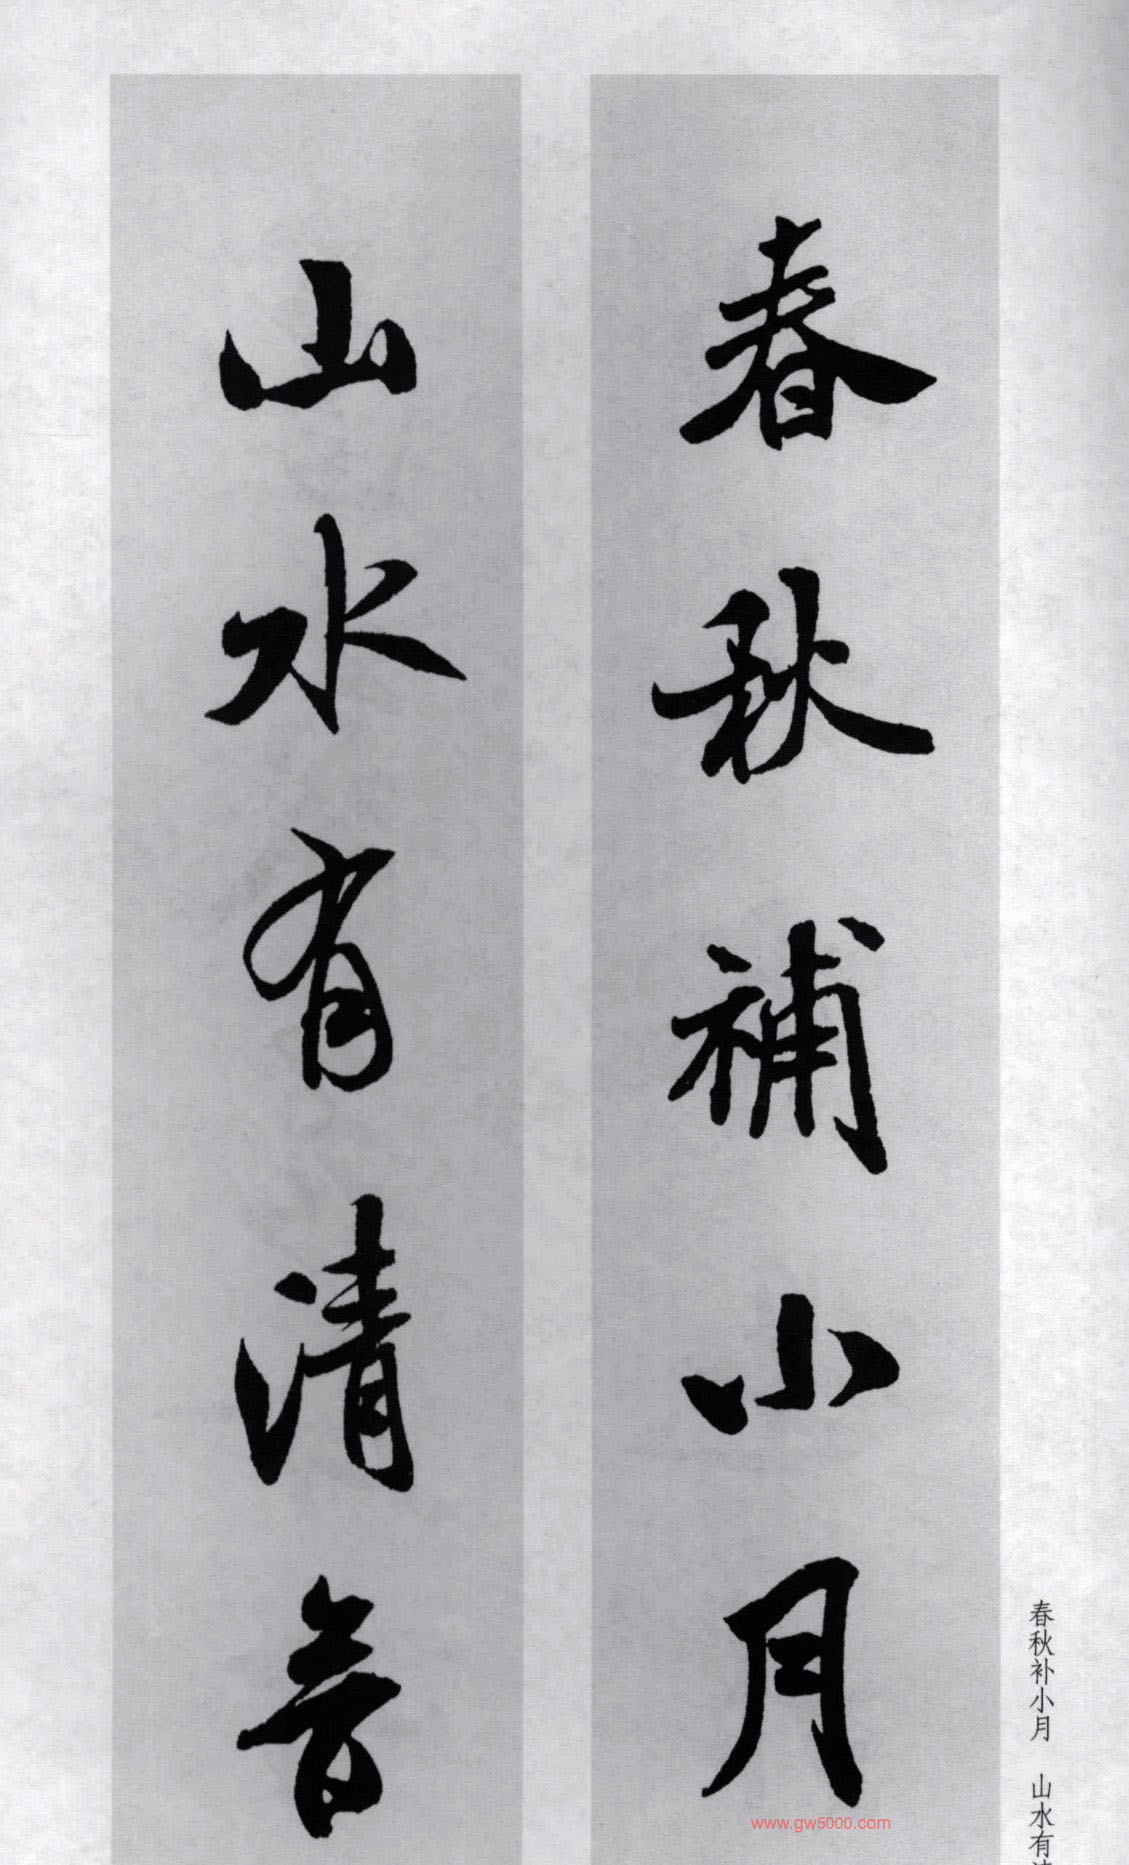 春秋補小月
山水有清音
春秋补小月 山水有
www.gw5000.com